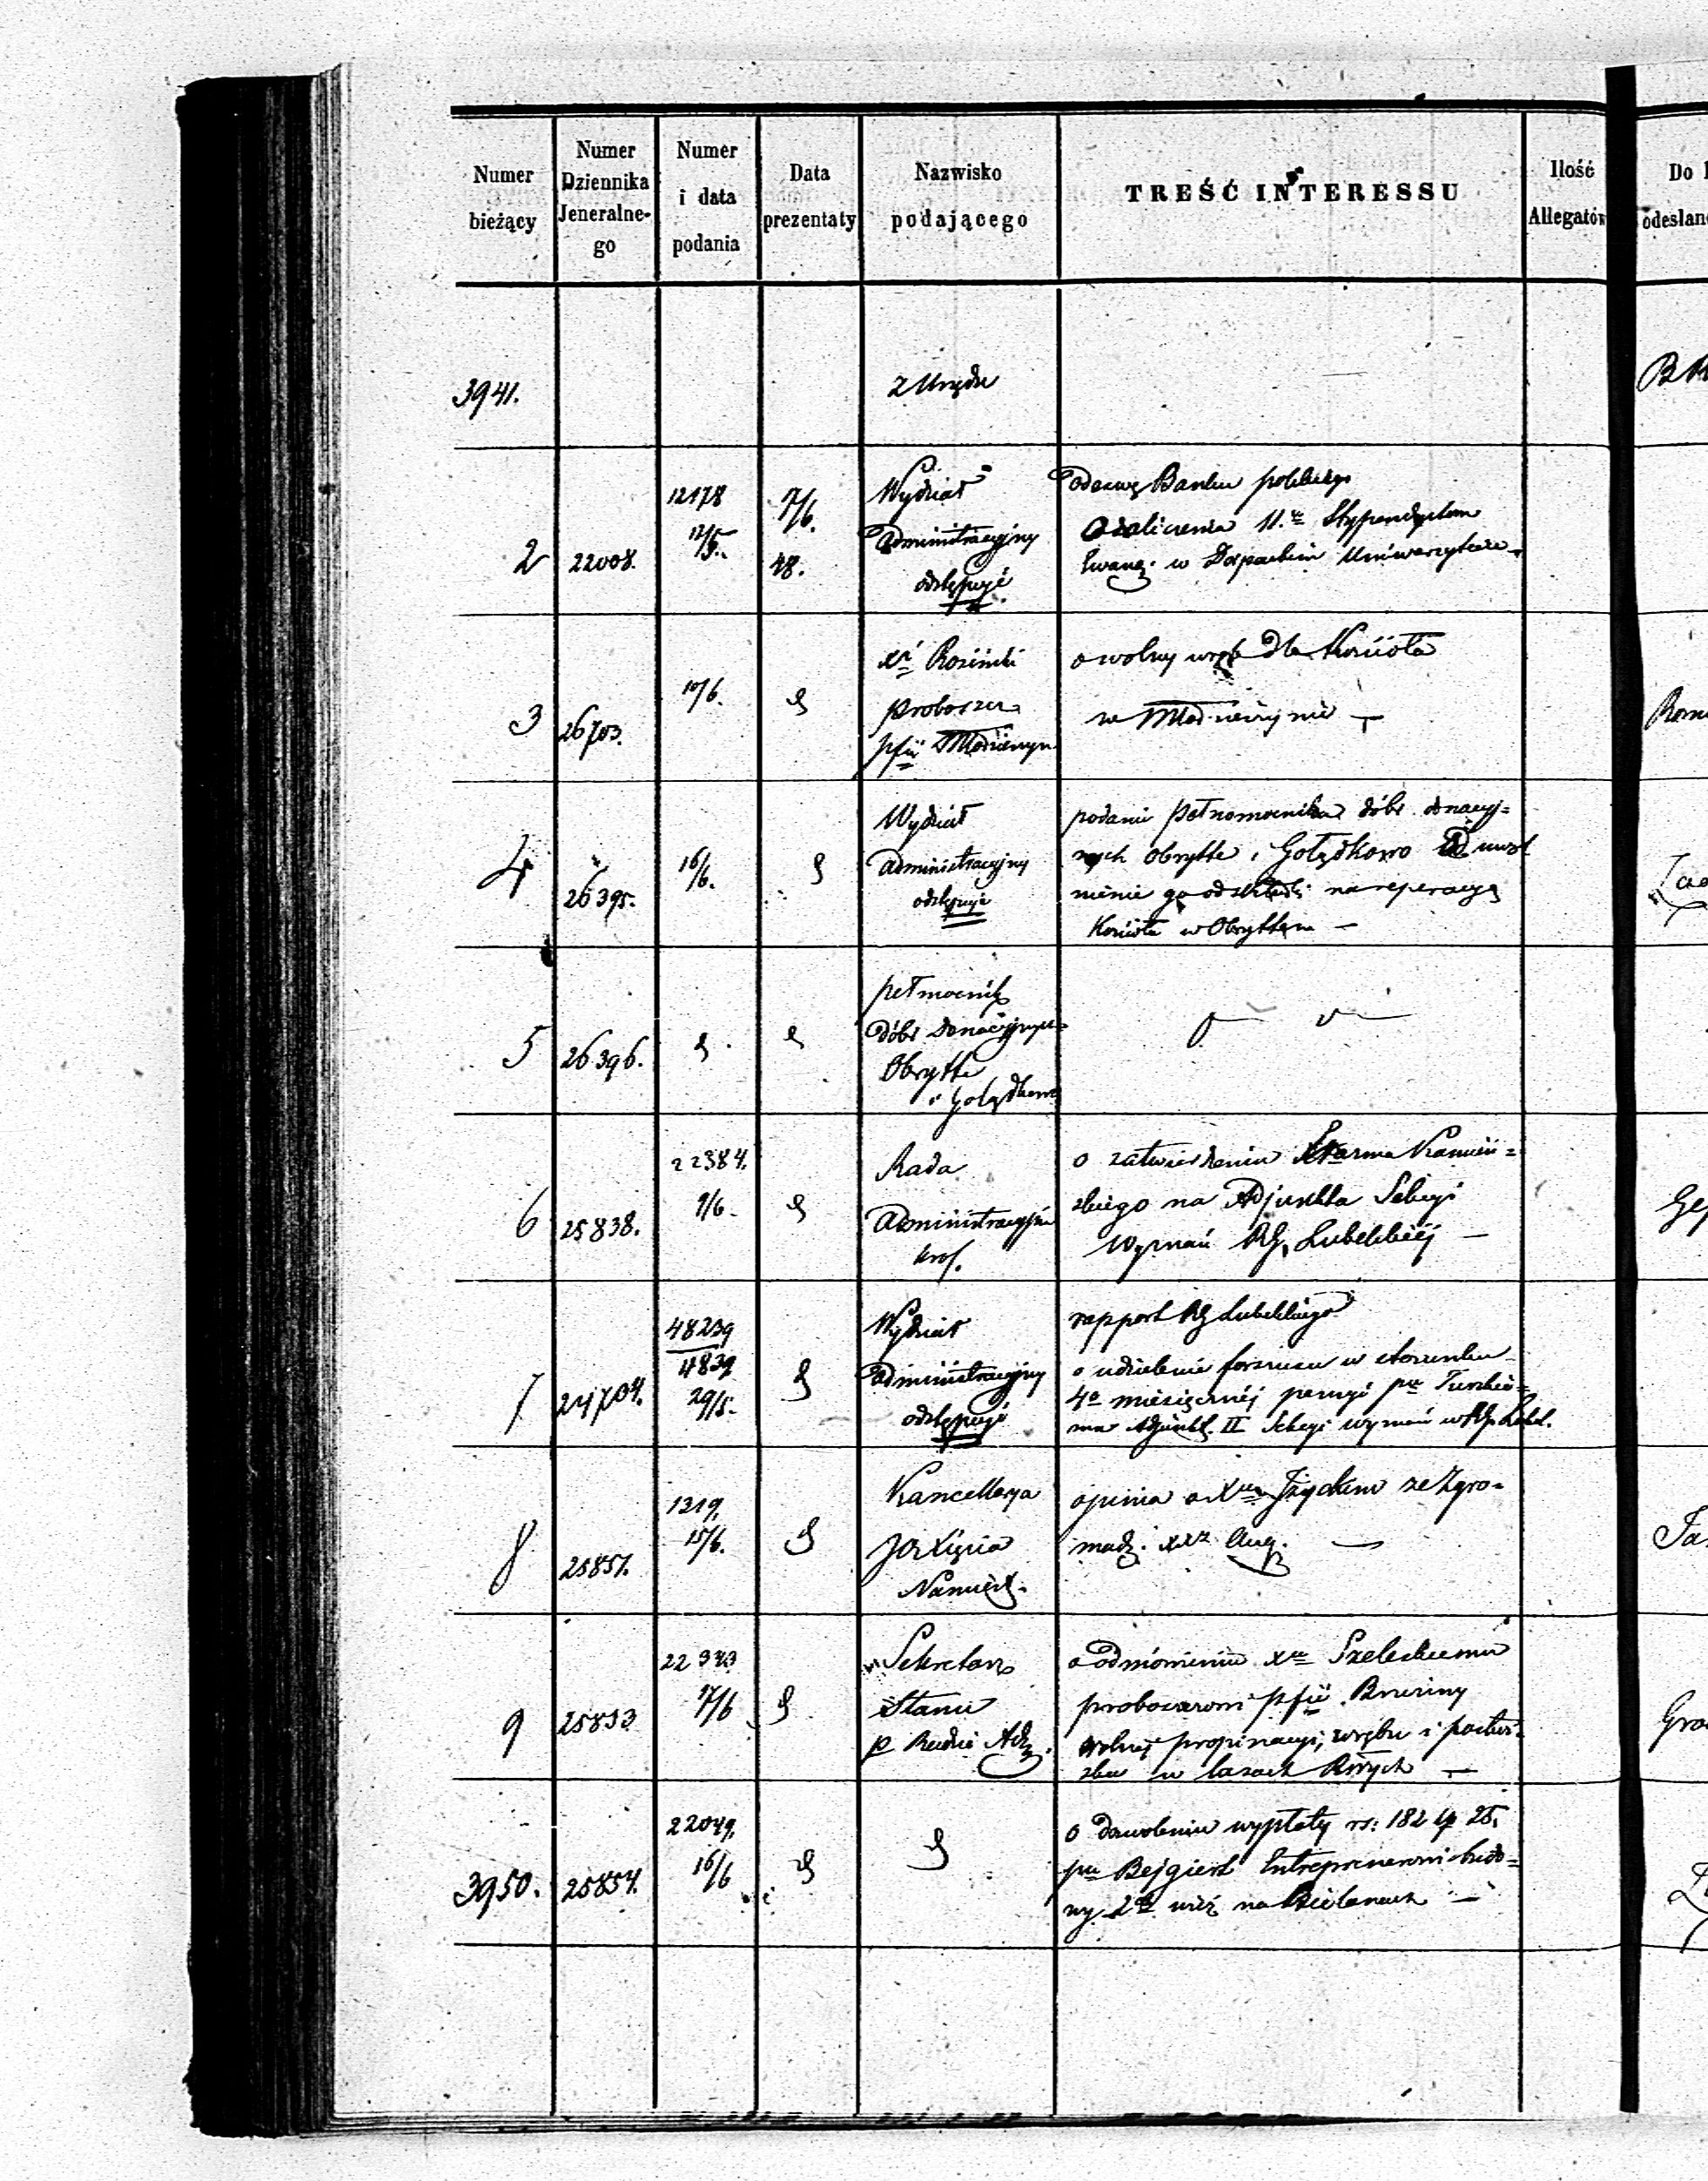 Numer bieżący
Numer Dziennika Jeneralne-go
Numer i data podania
Data prezentaty
Nazwisko podającego
TREŚĆ INTERESSU
Ilość Allegatów
Do
odesłan
3941.
z Urzędu
2
22008.
12178
12/5.
17/6.
48.
Wydział
Administracyjny
odstępuje
Odezwę Banku polskiego
Stypendystom
Ewang. w Dorpackim Uniwersytecie
3
26703.
10/6.
Xs Rosiński
proboszcz
pfii
o wolny wrąb dla Kościoła
w
4
26395.
16/6.
Wydział
Administracyjny
odstępuje
podanie pełnomocnika dóbr donacyj=
nych Obrytte i Gołądkowo
nienie go od składki na reperacyą
Kościoła w Obryttem —
5
26396.
dóbr donacyjnych
Obrytte
i Gołądkowo
6
25838.
22384.
9/6.
Rada
Administracyjna
Król.
o zatwierdzeniu Kamień=
skiego na Adjunkta Sekcyi
Wyznań RG Lubelskiej —
7
24704.
48239
4839
29/5.
Wydział
Administracyjny
odstępuje
rapport RG Lubelskiego
o udzielenie forszusu w stosunku
4o miesięcznéj pensyi pu
Adjunkt. II Sekcyi wyznań w RG. Lubel.
8
25851.
1319.
15/6.
Kancellarya
JO Xięcia
Namiest.
opinia o Xu ze Zgro=
madz. xx Aug. —
9
25853
22343
17/6
Sekretarz
Stanu
p Radzie Adm.
o odmówieniu xu Szeleckiemu
proboszczowi pfii Bruziny
wolnéj propinacyi, wrębu i pastwi=
ska w lasach Rwych —
3950.
25854.
22049.
16/6
o dozwoleniu wypłaty rs: 182 kp 25,
pu Bejgiert Entreprenerowi budo=
wy 2ch wież na Bielanach —